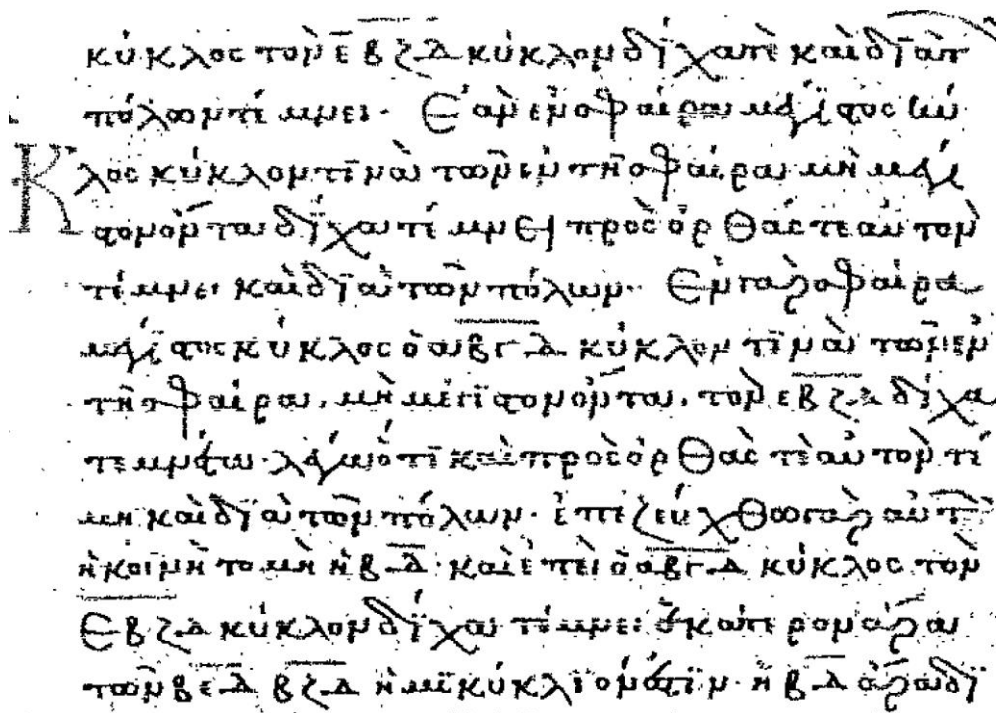 κύκλος τὸν ε̅β̅ζ̅δ̅ κύκλον δίχα τε καὶ διὰ τῶν
πόλων τέμνει. Ἐὰν ἐν σφαίραι μέγιστος κύ
κλος κύκλον τινὰ τῶν ἐν τῆι σφαίραι μὴ μέγι
στον ὄντα δίχα τέμνει πρὸς ὀρθάς τε αὐτὸν
τέμνει καὶ διὰ τῶν πόλων. Ἐν γὰρ σφαίρα
μέγιστος κύκλος ὁ α̅β̅γ̅δ̅ κύκλον τινὰ τῶν ἐν
τῆι σφαίραι, μὴ μέγιστον ὄντα, τὸν ε̅β̅ζ̅δ̅ δίχα
τεμνέτω. λέγω ὅτι καὶ πρὸς ὀρθάς τε αὐτὸν τέ
μνει καὶ διὰ τῶν πόλων. ἐπεζεύχθω γὰρ αὐτῶν
ἡ κοινὴ τομὴ ἡ β̅δ̅. καὶ ἐπεὶ ὁ α̅β̅γ̅δ̅ κύκλος τὸν
ε̅β̅ζ̅δ̅ κύκλον δίχα τέμνει ἑκάτερον ἄρα
τῶν β̅ε̅δ̅ β̅ζ̅δ̅ ἡμικύκλιόν ἐστιν. ἡ β̅δ̅ ἄρα δι